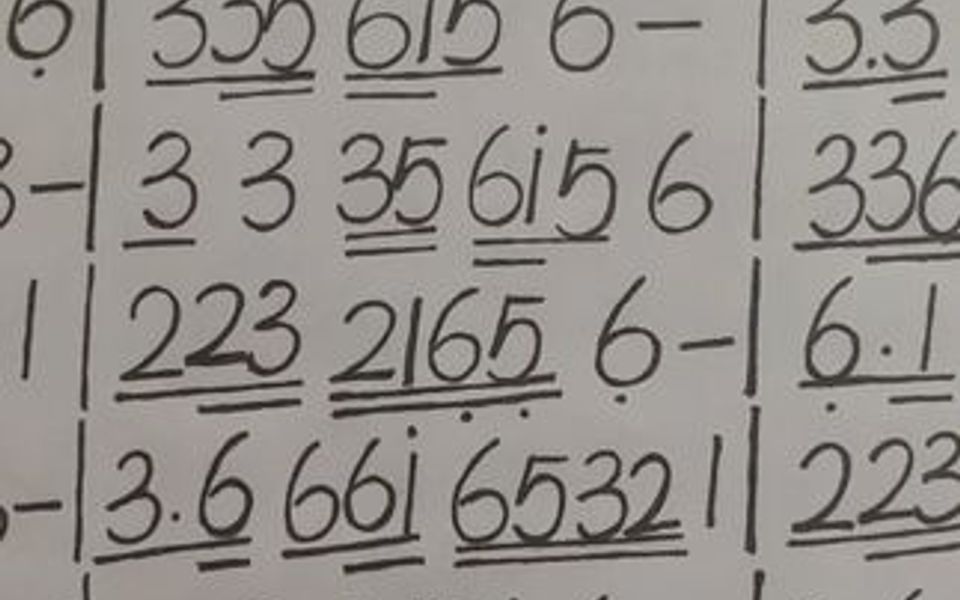 6̣ | 335 615 6 – | 3.3
3 – | 3 3 35 6i5 6 | 336
1 | 223 216̣5̣ 6̣ – | 6̣.1
– | 3.6 66i 6532 1 | 223